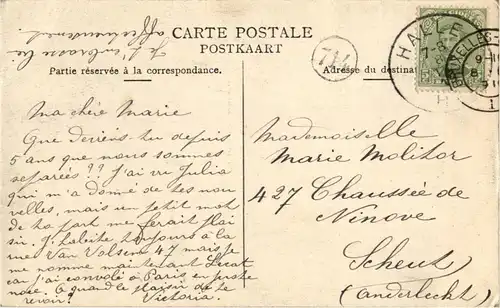 Je t'embrasse bien
affectueusement
CARTE POSTALE
POSTKAART
Partie réservée à la correspondance.
Adresse du destinat
714
HAL
BRUXELLES
Ma chère Marie
Que deviens-tu depuis
5 ans que nous sommes
separées?? J'ai vu Julia
qui m'a donné de tes nou
velles, mais un petit mot
de ta part me ferait plai
sir. J'habite toujours à la
rue Van Volsem 47 mais je
me nomme maintenant
car j'ai convolé à Paris en juste
noce. A quand le plaisir de te
revoir? Victoria.
Mademoiselle
Marie Molitor
427 Chaussée de
Ninove
Scheut
(Anderlecht)